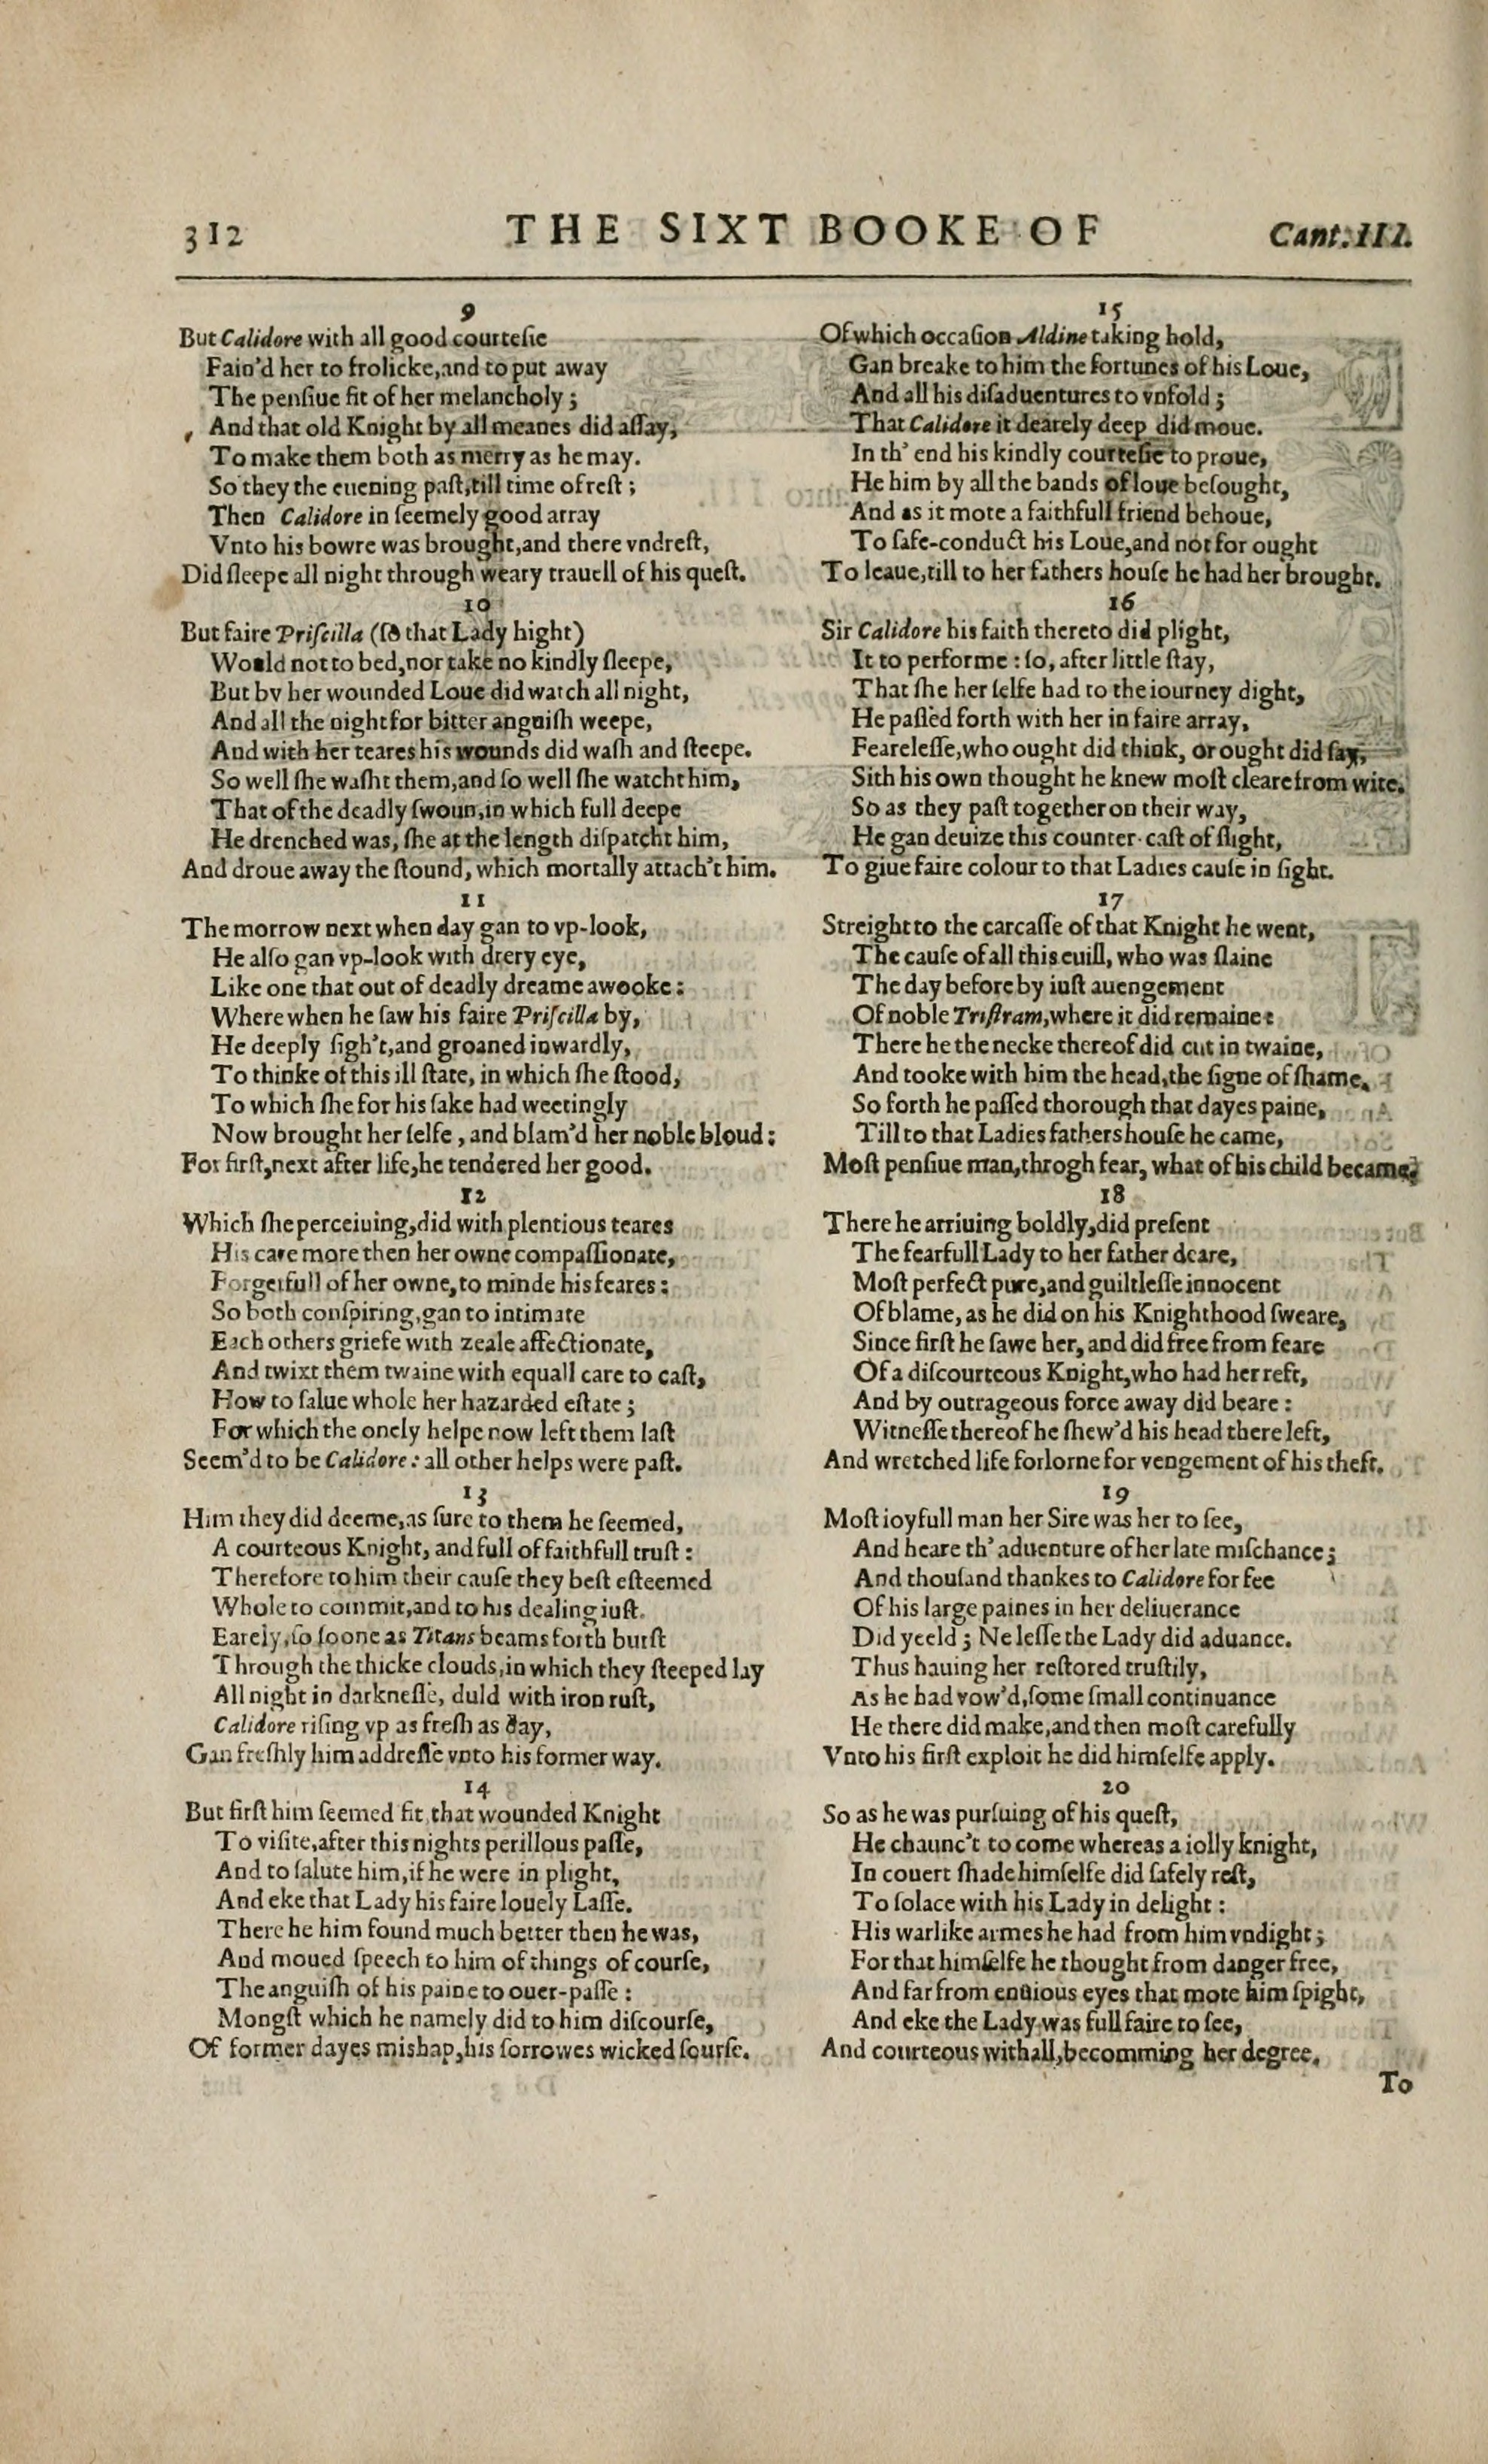 312 THE SIXT BOOKE OF Cant. III.
9
But Calidore with all good courteſie
Fain'd her to frolicke, and to put away
The penſiue fit of her melancholy;
And that old Knight by all meanes did aſſay,
To make them both as merry as he may.
So they the euening paſt, till time of reſt;
Then Calidore in ſeemely good array
Vnto his bowre was brought, and there vndreſt,
Did ſleepe all night through weary trauell of his queſt.
10
But faire Priſcilla (ſo that Lady hight)
Would not to bed, nor take no kindly ſleepe,
But by her wounded Loue did watch all night,
And all the night for bitter anguiſh weepe,
And with her teares his wounds did waſh and ſteepe.
So well ſhe waſht them, and ſo well ſhe watcht him,
That of the deadly ſwoun, in which full deepe
He drenched was, ſhe at the length diſpatcht him,
And droue away the ſtound, which mortally attach't him.
11
The morrow next when day gan to vp-look,
He alſo gan vp-look with drery eye,
Like one that out of deadly dreame awooke:
Where when he ſaw his faire Priſcilla by,
He deeply ſigh't, and groaned inwardly,
To thinke of this ill ſtate, in which ſhe ſtood,
To which ſhe for his ſake had weetingly
Now brought her ſelfe, and blam'd her noble bloud:
For firſt, next after life, he tendered her good.
12
Which ſhe perceiuing, did with plentious teares
His care more then her owne compaſſionate,
Forgetfull of her owne, to minde his feares:
So both conſpiring, gan to intimate
Each others griefe with zeale affectionate,
And twixt them twaine with equall care to caſt,
How to ſalue whole her hazarded eſtate;
For which the onely helpe now left them laſt
Seem'd to be Calidore: all other helps were paſt.
13
Him they did deeme, as ſure to them he ſeemed,
A courteous Knight, and full of faithfull truſt:
Therefore to him their cauſe they beſt eſteemed
Whole to commit, and to his dealing iuſt.
Earely, ſo ſoone as Titans beams forth burſt
Through the thicke clouds, in which they ſteeped lay
All night in darkneſſe, duld with iron ruſt,
Calidore riſing vp as freſh as day,
Gan freſhly him addreſſe vnto his former way.
14
But firſt him ſeemed fit that wounded Knight
To viſite, after this nights perillous paſſe,
And to ſalute him, if he were in plight,
And eke that Lady his faire louely Laſſe.
There he him found much better then he was,
And moued ſpeech to him of things of courſe,
The anguiſh of his paine to ouer-paſſe:
Mongſt which he namely did to him diſcourſe,
Of former dayes mishap, his ſorrowes wicked ſourſe.
15
Of which occaſion Aldine taking hold,
Gan breake to him the fortunes of his Loue,
And all his diſaduentures to vnfold;
That Calidore it dearely deep did moue.
In th' end his kindly courteſie to proue,
He him by all the bands of loue beſought,
And as it mote a faithfull friend behoue,
To ſafe-conduct his Loue, and not for ought
To leaue, till to her fathers houſe he had her brought.
16
Sir Calidore his faith thereto did plight,
It to performe: ſo, after little ſtay,
That ſhe her ſelfe had to the iourney dight,
He paſſed forth with her in faire array,
Feareleſſe, who ought did think, or ought did ſay,
Sith his own thought he knew moſt cleare from wite.
So as they paſt together on their way,
He gan deuize this counter-caſt of ſlight,
To giue faire colour to that Ladies cauſe in ſight.
17
Streight to the carcaſſe of that Knight he went,
The cauſe of all this euill, who was ſlaine
The day before by iuſt auengement
Of noble Triſtram, where it did remaine:
There he the necke thereof did cut in twaine,
And tooke with him the head, the ſigne of ſhame.
So forth he paſſed thorough that dayes paine,
Till to that Ladies fathers houſe he came,
Moſt penſiue man, throgh fear, what of his child became.
18
There he arriuing boldly, did preſent
The fearfull Lady to her father deare,
Moſt perfect pure, and guiltleſſe innocent
Of blame, as he did on his Knighthood ſweare,
Since firſt he ſawe her, and did free from feare
Of a diſcourteous Knight, who had her reft,
And by outrageous force away did beare:
Witneſſe thereof he ſhew'd his head there left,
And wretched life forlorne for vengement of his theft.
19
Moſt ioyfull man her Sire was her to ſee,
And heare th' aduenture of her late miſchance;
And thouſand thankes to Calidore for fee
Of his large paines in her deliuerance
Did yeeld; Ne leſſe the Lady did aduance.
Thus hauing her reſtored truſtily,
As he had vow'd, ſome ſmall continuance
He there did make, and then moſt carefully
Vnto his firſt exploit he did himſelfe apply.
20
So as he was purſuing of his queſt,
He chaunc't to come whereas a iolly knight,
In couert ſhade himſelfe did ſafely reſt,
To ſolace with his Lady in delight:
His warlike armes he had from him vndight;
For that himſelfe he thought from danger free,
And far from enuious eyes that mote him ſpight,
And eke the Lady was full faire to ſee,
And courteous withall, becomming her degree.
To